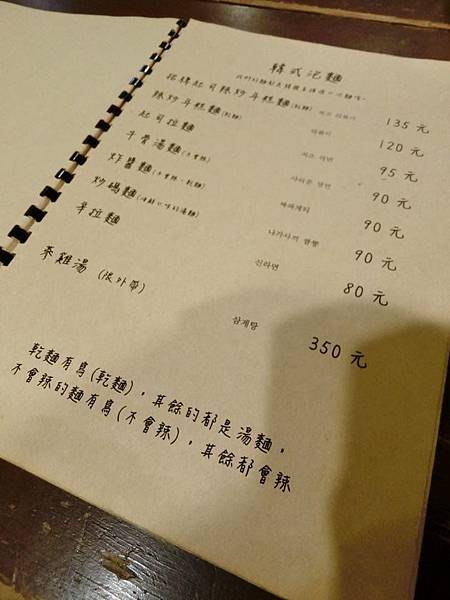 韓式泡麵
招牌起司辣炒年糕麵(乾麵) 치즈 라볶이 135元
辣炒年糕麵(乾麵) 라볶이 120元
起司拉麵 치즈 라면 95元
牛骨湯麵(不會辣) 사리곰 탕면 90元
炸醬麵(不會辣、乾麵) 짜파게티 90元
炒碼麵(海鮮口味的湯麵) 나가사끼 짬뽕 90元
辛拉麵 신라면 80元
蔘雞湯 (限外帶) 삼계탕 350元
乾麵有寫(乾麵)，其餘的都是湯麵，
不會辣的麵有寫(不會辣)，其餘都會辣